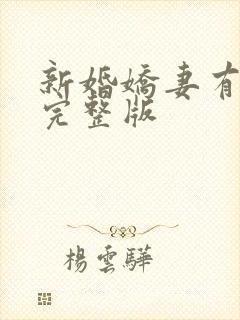 新婚嬌妻有
完整版
楊雲驊